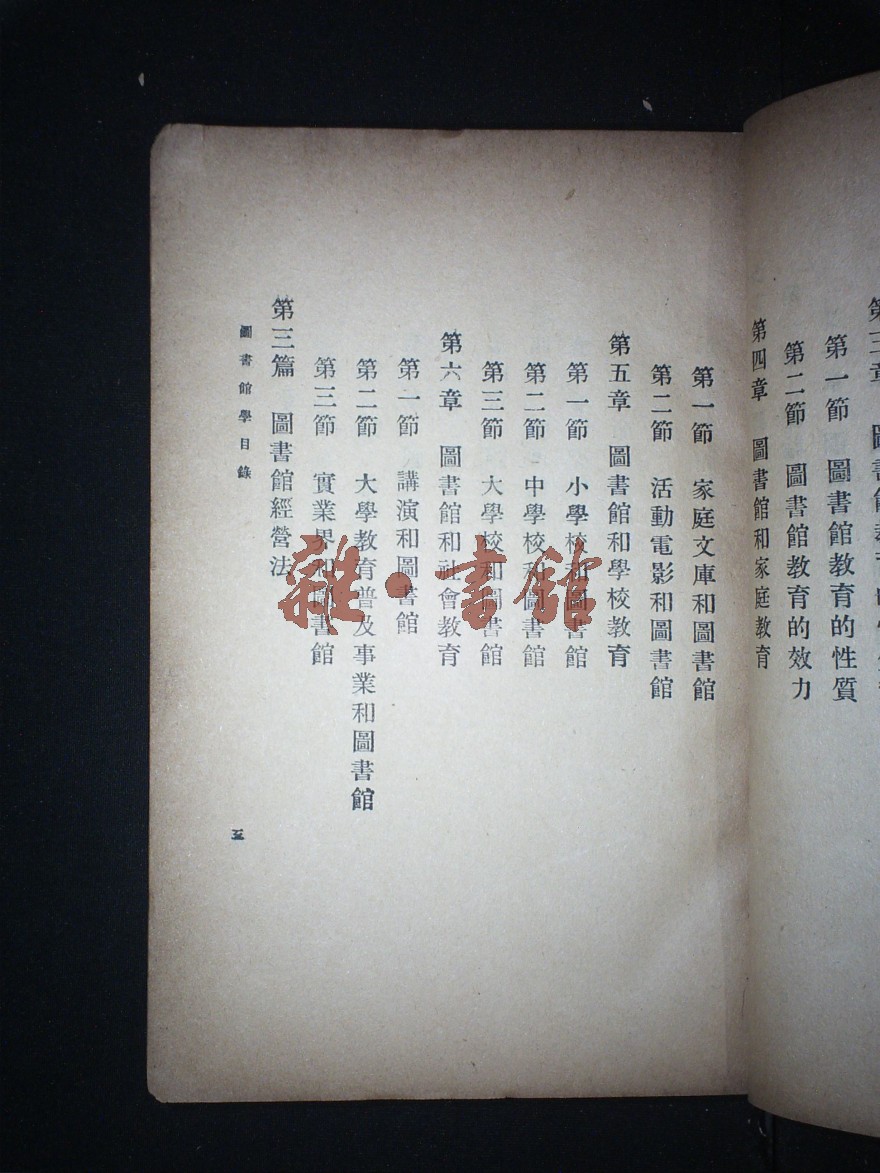 第三章　圖書館教育的性質
第一節　圖書館教育的性質
第二節　圖書館教育的效力
第四章　圖書館和家庭教育
第一節　家庭文庫和圖書館
第二節　活動電影和圖書館
第五章　圖書館和學校教育
第一節　小學校和圖書館
第二節　中學校和圖書館
第三節　大學校和圖書館
第六章　圖書館和社會教育
第一節　講演和圖書館
第二節　大學教育普及事業和圖書館
第三節　實業界和圖書館
第三篇　圖書館經營法
圖書館學目錄
五
雜·書館